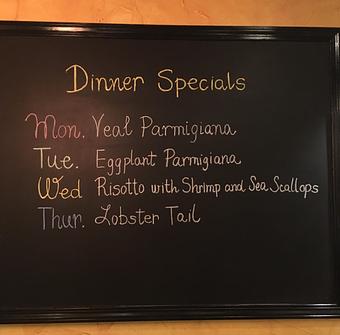 Dinner Specials
Mon. Veal Parmigiana
Tue. Eggplant Parmigiana
Wed Risotto with Shrimp and Sea Scallops
Thur. Lobster Tail